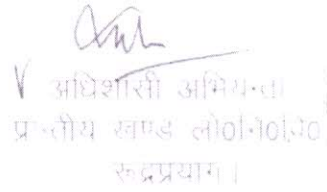 अधिशासी अभियन्ता
प्रान्तीय खण्ड लो0नि0वि0
रूद्रप्रयाग।